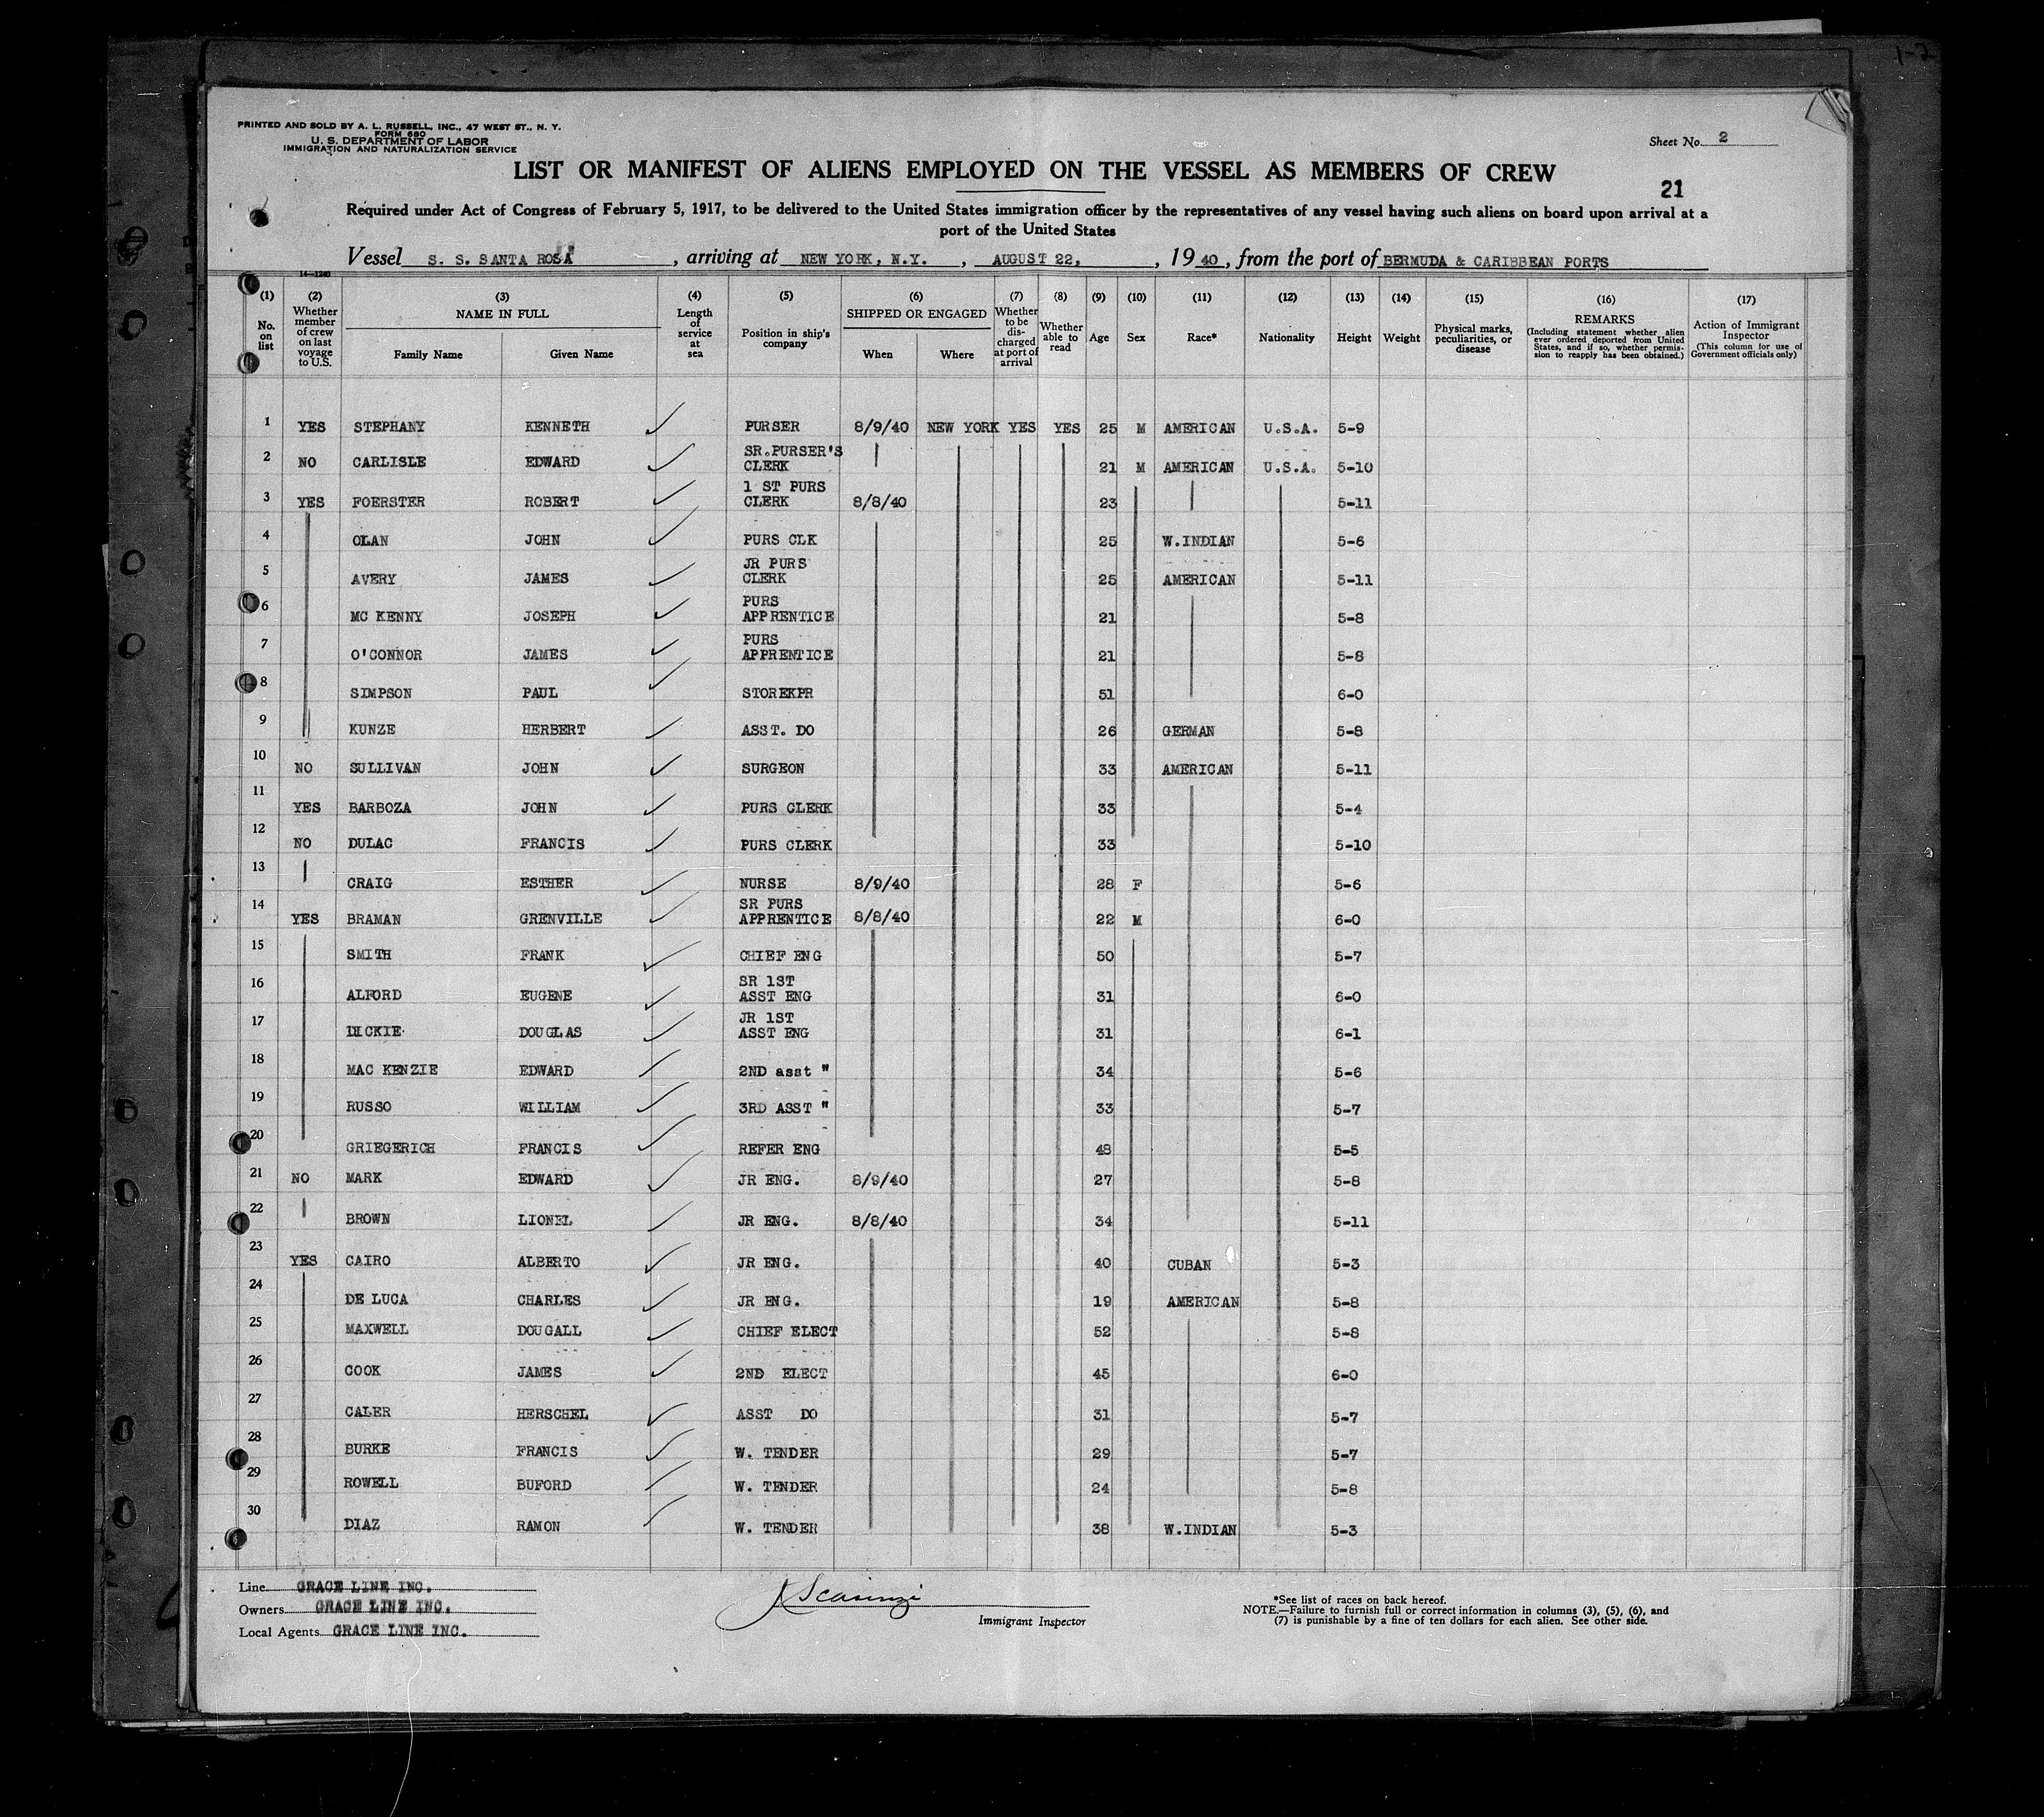 PRINTED AND SOLD BY A. L. RUSSELL, INC., 47 WEST ST., N. Y.
FORM 680
U. S. DEPARTMENT OF LABOR
IMMIGRATION AND NATURALIZATION SERVICE
Sheet No. 2
LIST OR MANIFEST OF ALIENS EMPLOYED ON THE VESSEL AS MEMBERS OF CREW
21
Required under Act of Congress of February 5, 1917, to be delivered to the United States immigration officer by the representatives of any vessel having such aliens on board upon arrival at a
port of the United States
Vessel S. S. SANTA ROSA , arriving at NEW YORK, N.Y. , AUGUST 22, , 1940, from the port of BERMUDA & CARIBBEAN PORTS
14—1240
(1) (2) (3) (4) (5) (6) (7) (8) (9) (10) (11) (12) (13) (14) (15) (16) (17)
No. on list
Whether member of crew on last voyage to U.S.
NAME IN FULL
Family Name Given Name
Length of service at sea
Position in ship's company
SHIPPED OR ENGAGED
When Where
Whether to be discharged at port of arrival
Whether able to read
Age Sex Race* Nationality Height Weight
Physical marks, peculiarities, or disease
REMARKS
(Including statement whether alien ever ordered deported from United States, and if so, whether permission to reapply has been obtained.)
Action of Immigrant Inspector
(This column for use of Government officials only)
1 YES STEPHANY KENNETH PURSER 8/9/40 NEW YORK YES YES 25 M AMERICAN U.S.A. 5-9
2 NO CARLISLE EDWARD SR.PURSER'S CLERK 21 M AMERICAN U.S.A. 5-10
3 YES FOERSTER ROBERT 1 ST PURS CLERK 8/8/40 23 5-11
4 OLAN JOHN PURS CLK 25 W.INDIAN 5-6
5 AVERY JAMES JR PURS CLERK 25 AMERICAN 5-11
6 MC KENNY JOSEPH PURS APPRENTICE 21 5-8
7 O'CONNOR JAMES PURS APPRENTICE 21 5-8
8 SIMPSON PAUL STOREKPR 51 6-0
9 KUNZE HERBERT ASST. DO 26 GERMAN 5-8
10 NO SULLIVAN JOHN SURGEON 33 AMERICAN 5-11
11 YES BARBOZA JOHN PURS CLERK 33 5-4
12 NO DULAC FRANCIS PURS CLERK 33 5-10
13 CRAIG ESTHER NURSE 8/9/40 28 F 5-6
14 YES BRAMAN GRENVILLE SR PURS APPRENTICE 8/8/40 22 M 6-0
15 SMITH FRANK CHIEF ENG 50 5-7
16 ALFORD EUGENE SR 1ST ASST ENG 31 6-0
17 DICKIE DOUGLAS JR 1ST ASST ENG 31 6-1
18 MAC KENZIE EDWARD 2ND asst " 34 5-6
19 RUSSO WILLIAM 3RD ASST " 33 5-7
20 GRIEGERICH FRANCIS REFER ENG 48 5-5
21 NO MARK EDWARD JR ENG. 8/9/40 27 5-8
22 BROWN LIONEL JR ENG. 8/8/40 34 5-11
23 YES CAIRO ALBERTO JR ENG. 40 CUBAN 5-3
24 DE LUCA CHARLES JR ENG. 19 AMERICAN 5-8
25 MAXWELL DOUGALL CHIEF ELECT 52 5-8
26 COOK JAMES 2ND ELECT 45 6-0
27 CALER HERSCHEL ASST DO 31 5-7
28 BURKE FRANCIS W. TENDER 29 5-7
29 ROWELL BUFORD W. TENDER 24 5-8
30 DIAZ RAMON W. TENDER 38 W.INDIAN 5-3
Line GRACE LINE INC.
Owners GRACE LINE INC.
Local Agents GRACE LINE INC.
Immigrant Inspector
*See list of races on back hereof.
NOTE.—Failure to furnish full or correct information in columns (3), (5), (6), and
(7) is punishable by a fine of ten dollars for each alien. See other side.